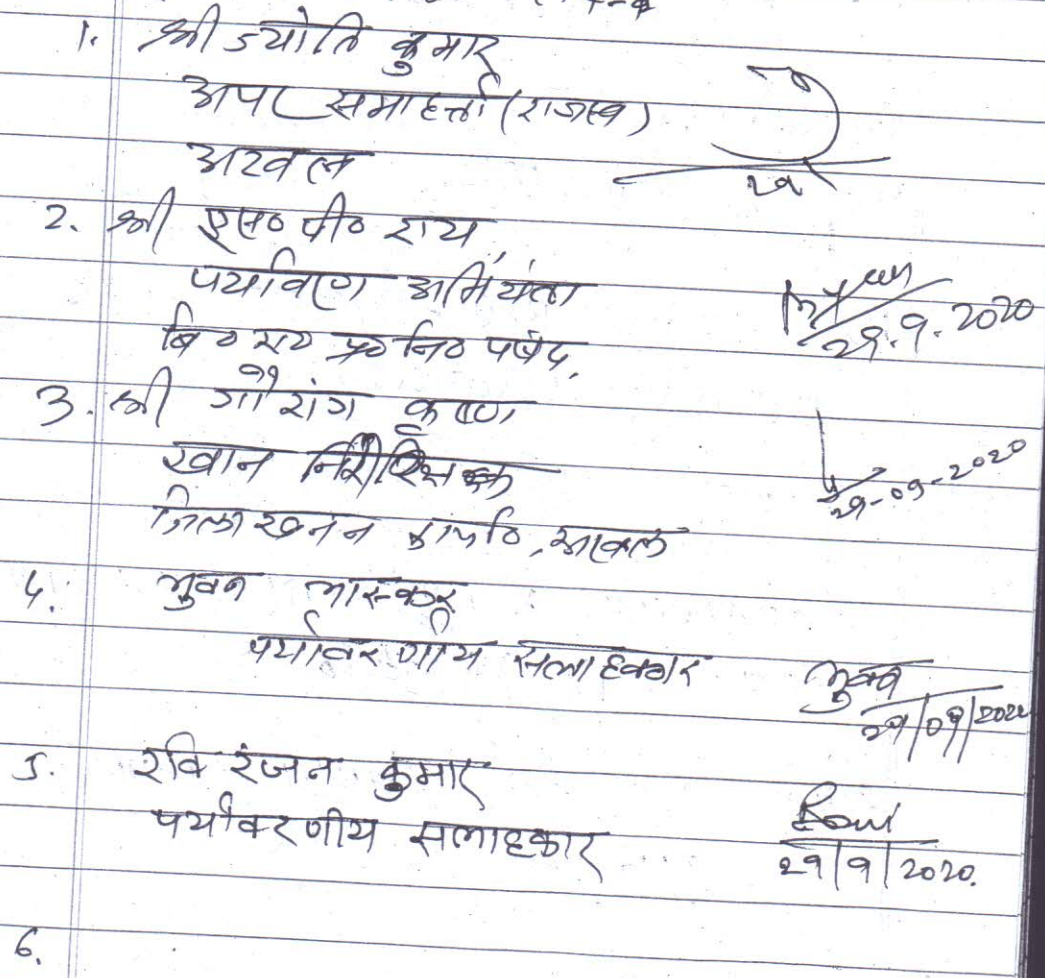 1. श्री ज्योति कुमार
अपर समाहर्त्ता (राजस्व)
अरवल
2. श्री एस० पी० राय
पर्यावरण अभियंता
बि० रा० प्र० नि० पर्षद,
29.9.2020
3. श्री गौरांग कृष्ण
खान निरीक्षक
29-09-2020
जिला खनन कार्या०, अरवल
4. भुवन भास्कर
पर्यावरणीय सलाहकार
भुवन
29/09/2020
5. रवि रंजन कुमार
पर्यावरणीय सलाहकार
Ravi
29/9/2020.
6.